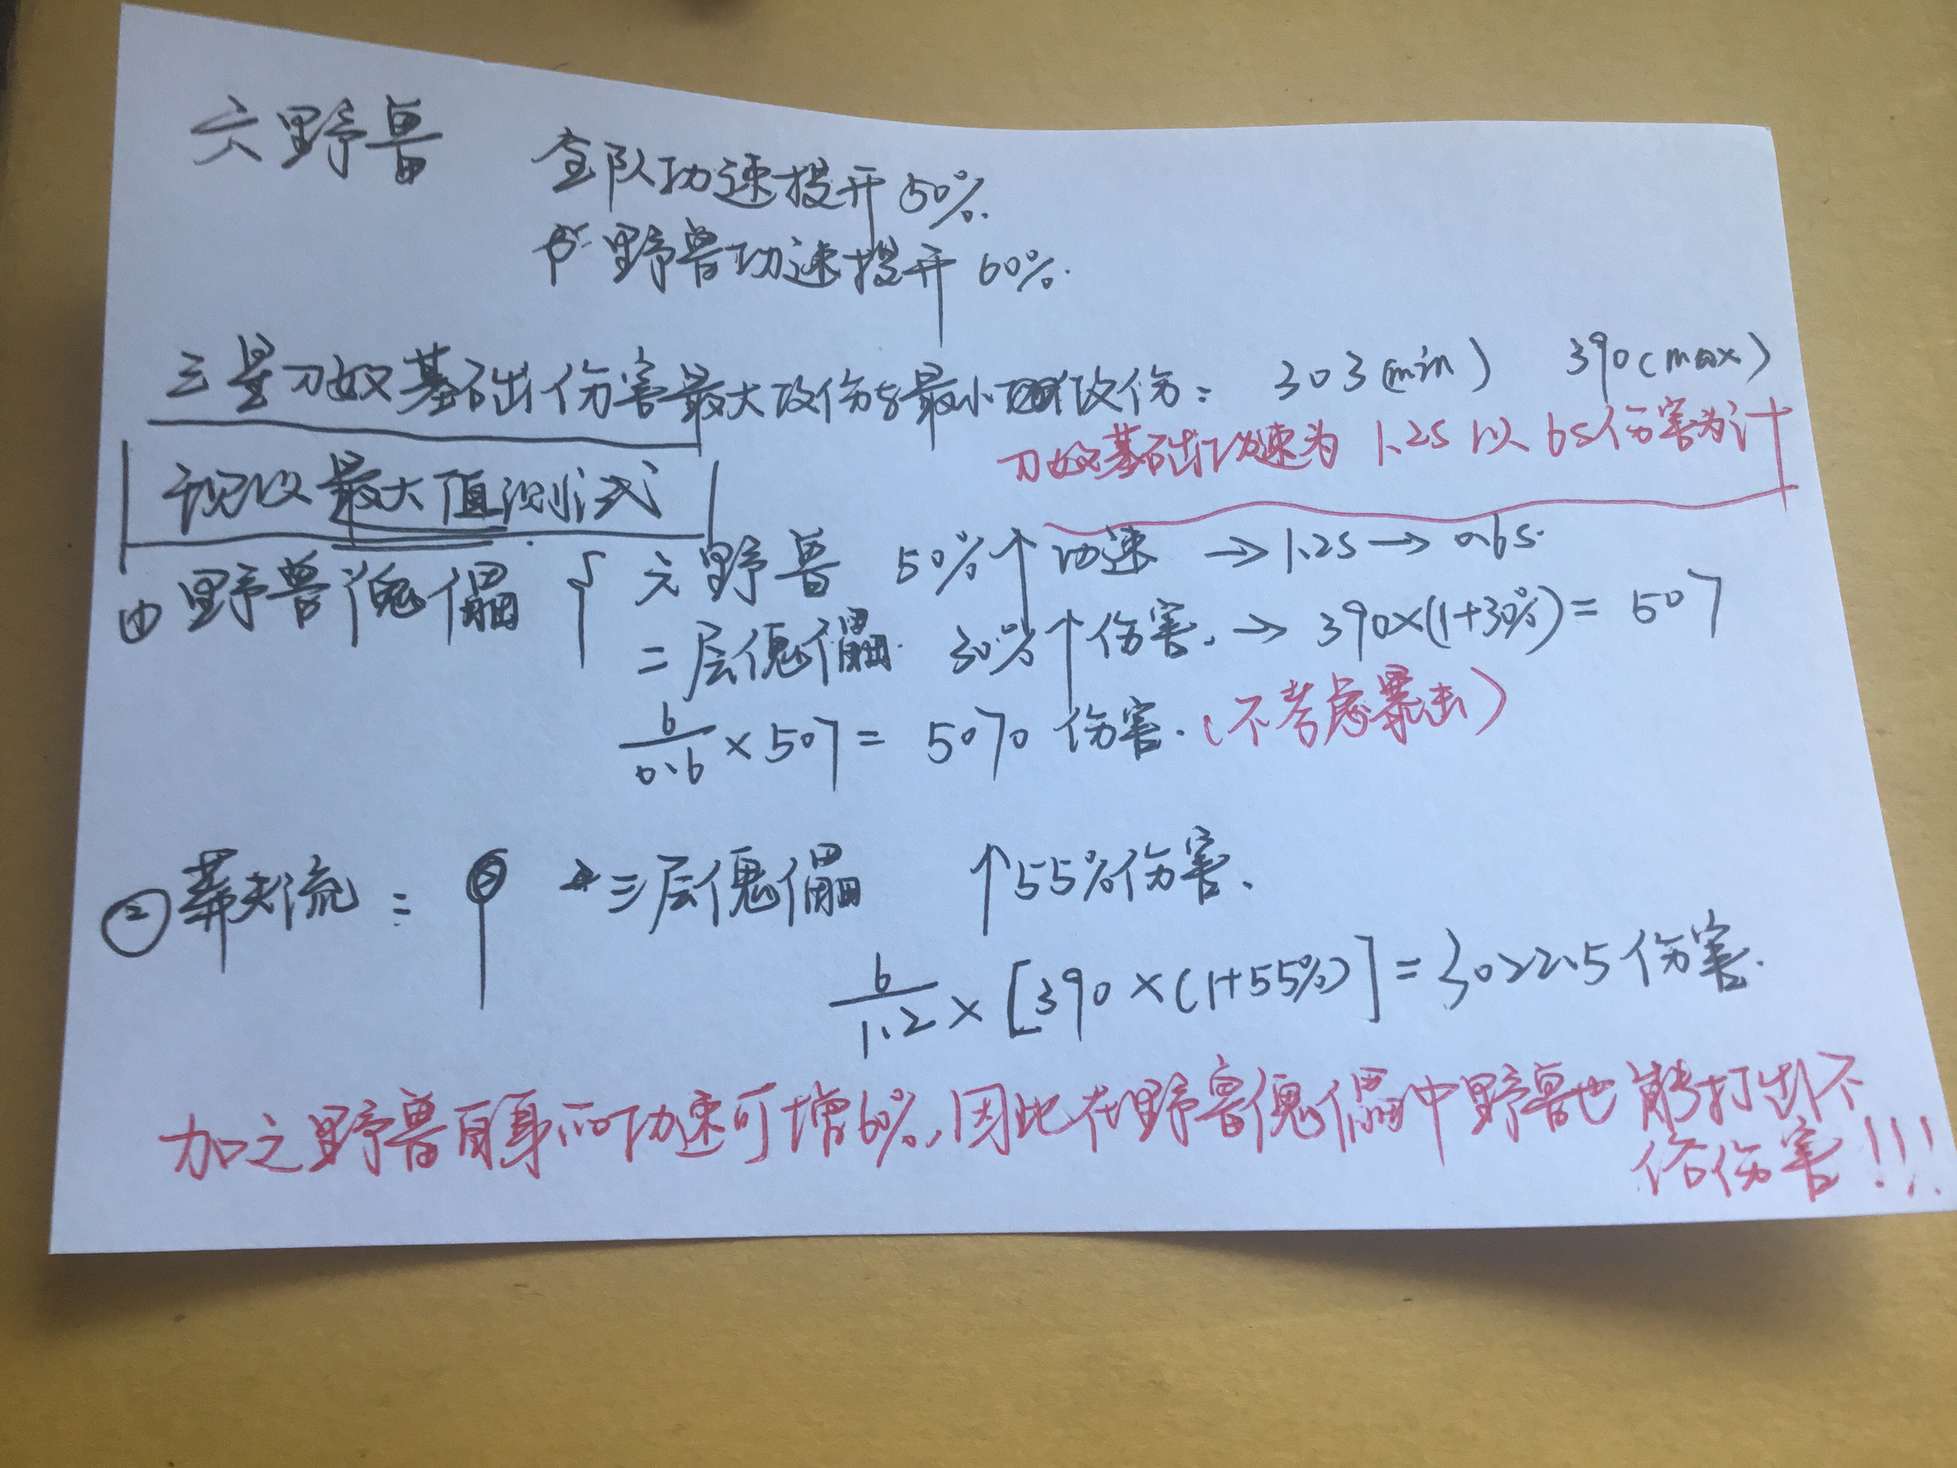 六野兽
全队攻速提升50%.
野兽攻速提升60%.
三星刀奴基础伤害最大攻伤与最小攻伤: 303(min) 390(max)
刀奴基础攻速为1.2s 以6s伤害为计
现以最大值测试
① 野兽傀儡 { 六野兽 50%↑攻速 →1.2s→0.6s.
二层傀儡 30%↑伤害.→390×(1+30%)=507
6/0.6×507=5070伤害.(不考虑暴击)
② 莽夫流: →三层傀儡 ↑55%伤害.
6/1.2×[390×(1+55%)]=3022.5伤害.
加之野兽自身而攻速可增60%,因此在野兽傀儡中野兽也能打出不
俗伤害!!!